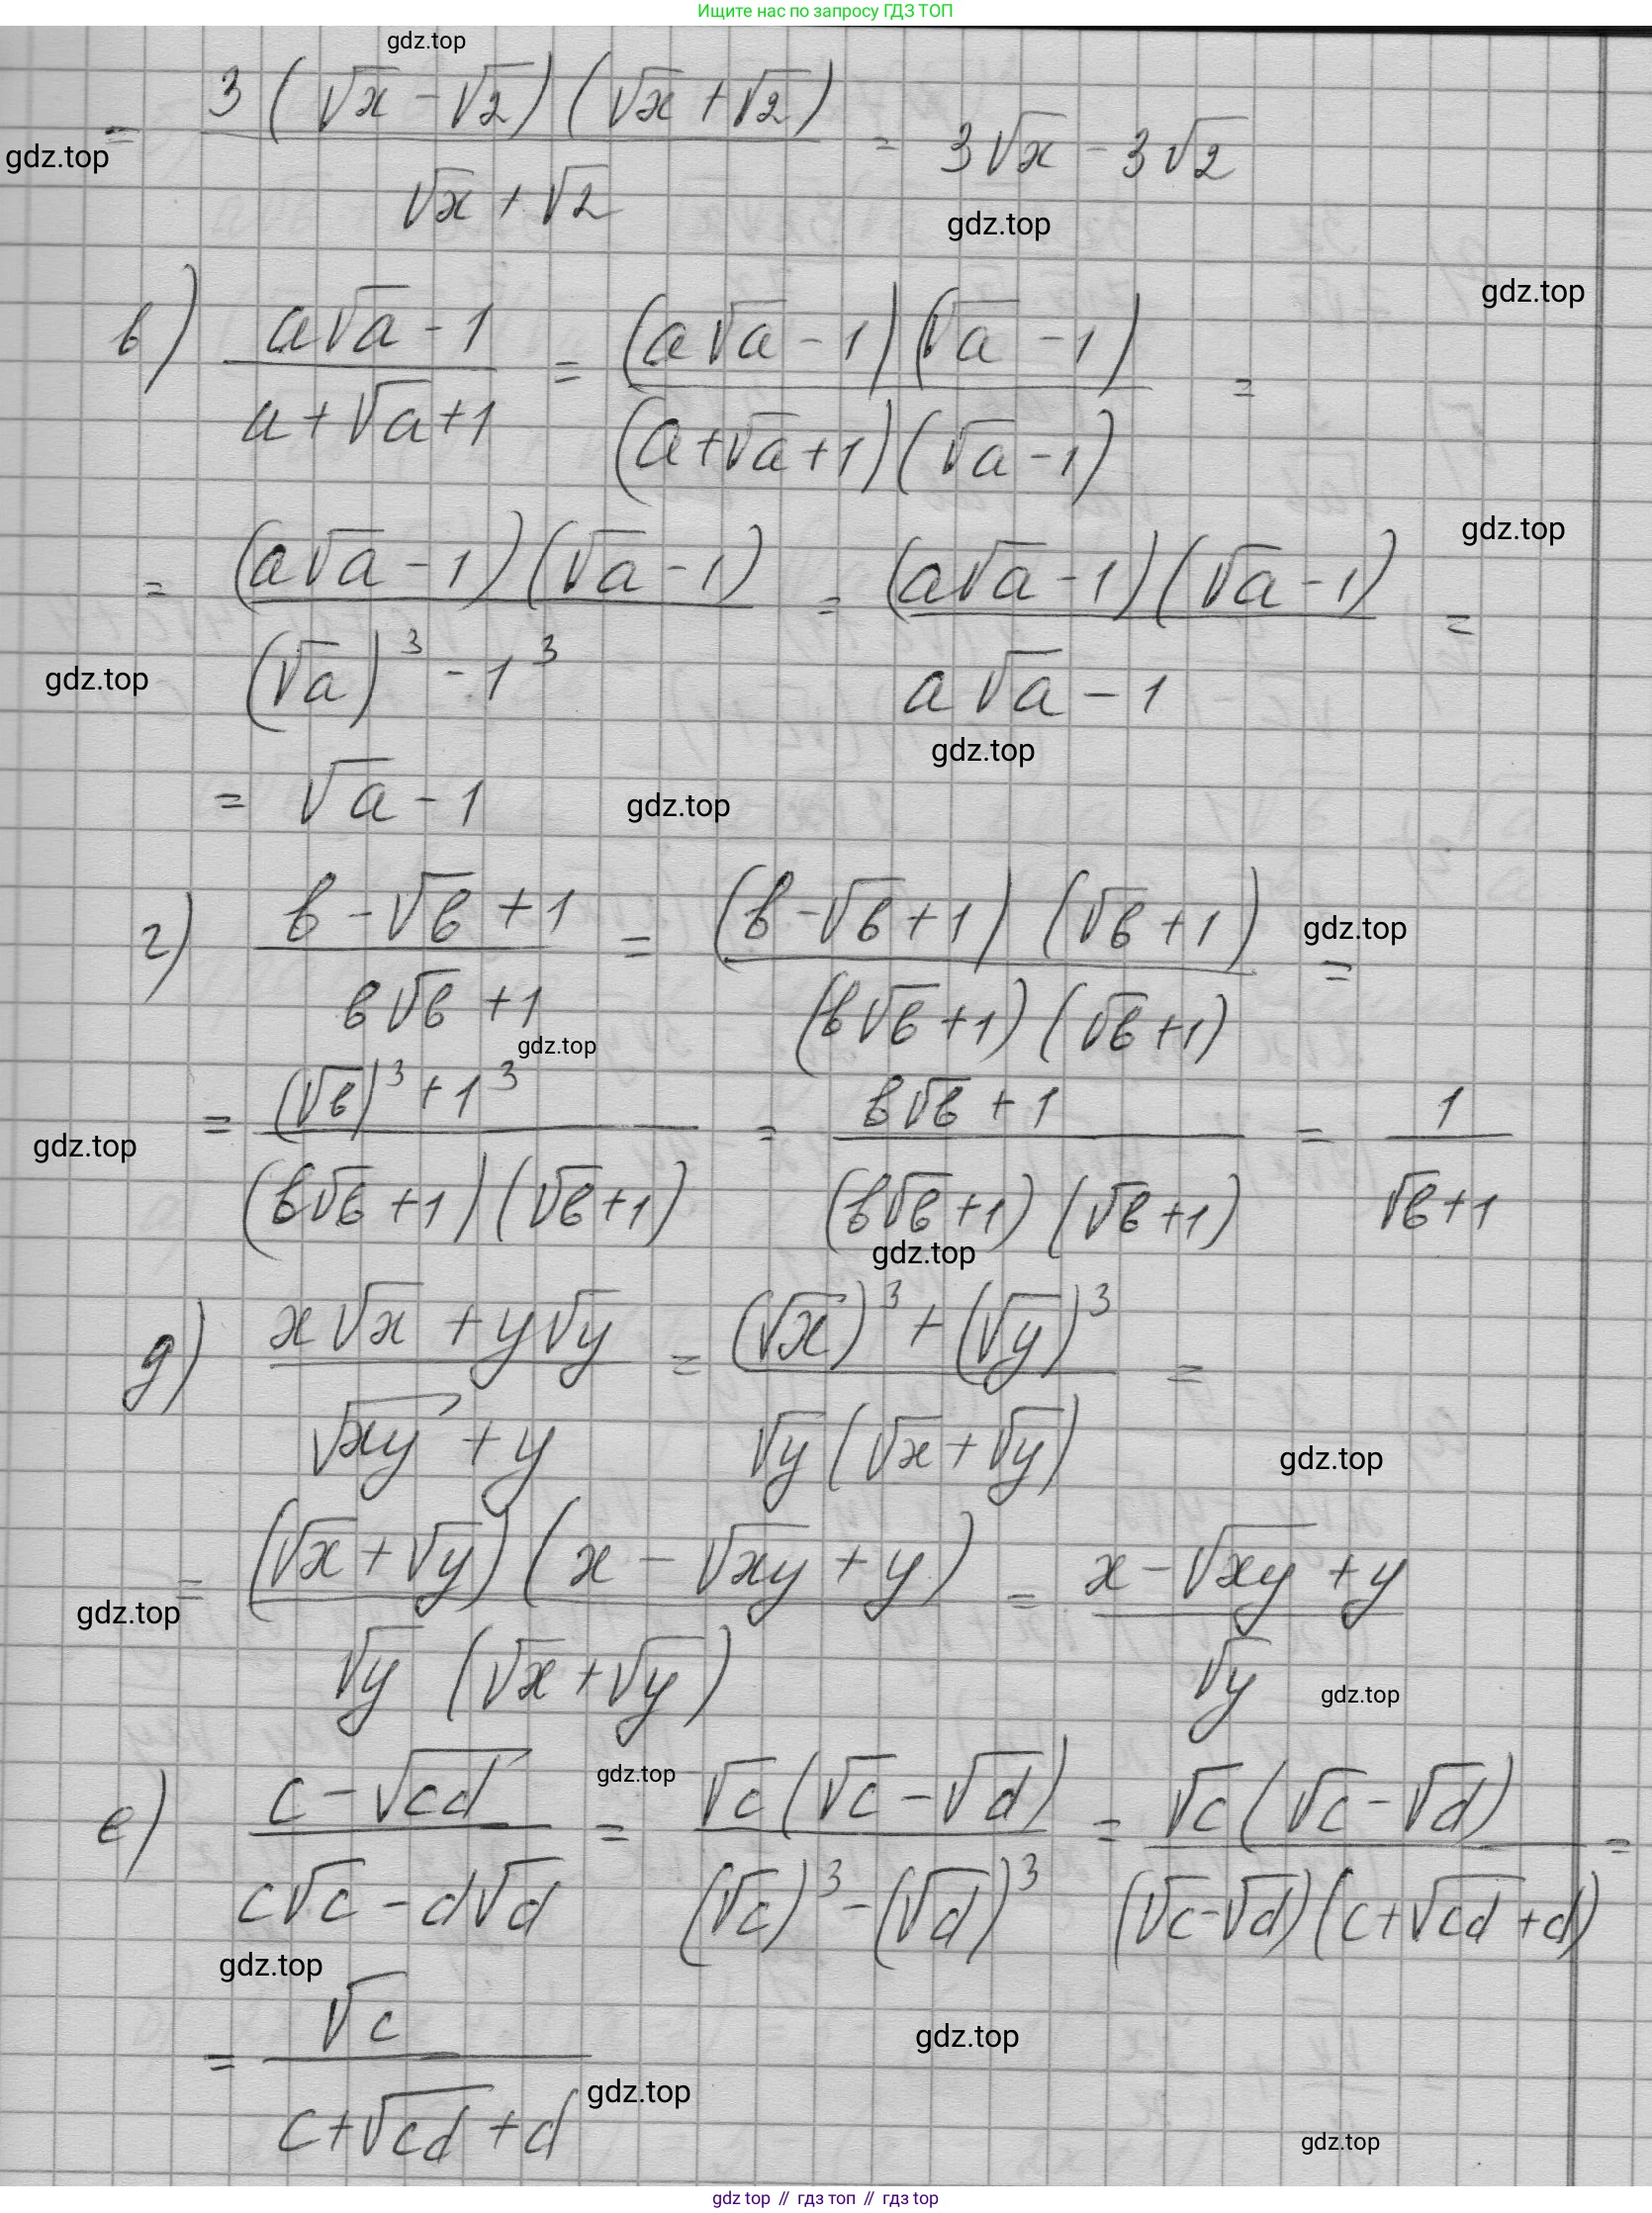 Ищите нас по запросу ГДЗ ТОП
gdz.top
= 3(√x - √2)(√x + √2) / (√x + √2) = 3√x - 3√2
gdz.top
gdz.top
gdz.top
в) (a√a - 1) / (a + √a + 1) = (a√a - 1)(√a - 1) / ((a + √a + 1)(√a - 1)) =
gdz.top
= (a√a - 1)(√a - 1) / ((√a)³ - 1³) = (a√a - 1)(√a - 1) / (a√a - 1) =
gdz.top
gdz.top
= √a - 1
gdz.top
г) (в - √в + 1) / (в√в + 1) = (в - √в + 1)(√в + 1) / ((в√в + 1)(√в + 1)) =
gdz.top
gdz.top
= ((√в)³ + 1³) / ((в√в + 1)(√в + 1)) = (в√в + 1) / ((в√в + 1)(√в + 1)) = 1 / (√в + 1)
gdz.top
gdz.top
д) (x√x + y√y) / (√xy + y) = ((√x)³ + (√y)³) / (√y(√x + √y)) =
gdz.top
= (√x + √y)(x - √xy + y) / (√y(√x + √y)) = (x - √xy + y) / √y
gdz.top
gdz.top
gdz.top
е) (c - √cd) / (c√c - d√d) = √c(√c - √d) / ((√c)³ - (√d)³) = √c(√c - √d) / ((√c - √d)(c + √cd + d)) =
gdz.top
= √c / (c + √cd + d)
gdz.top
gdz.top
gdz.top
gdz top // гдз топ // гдз top